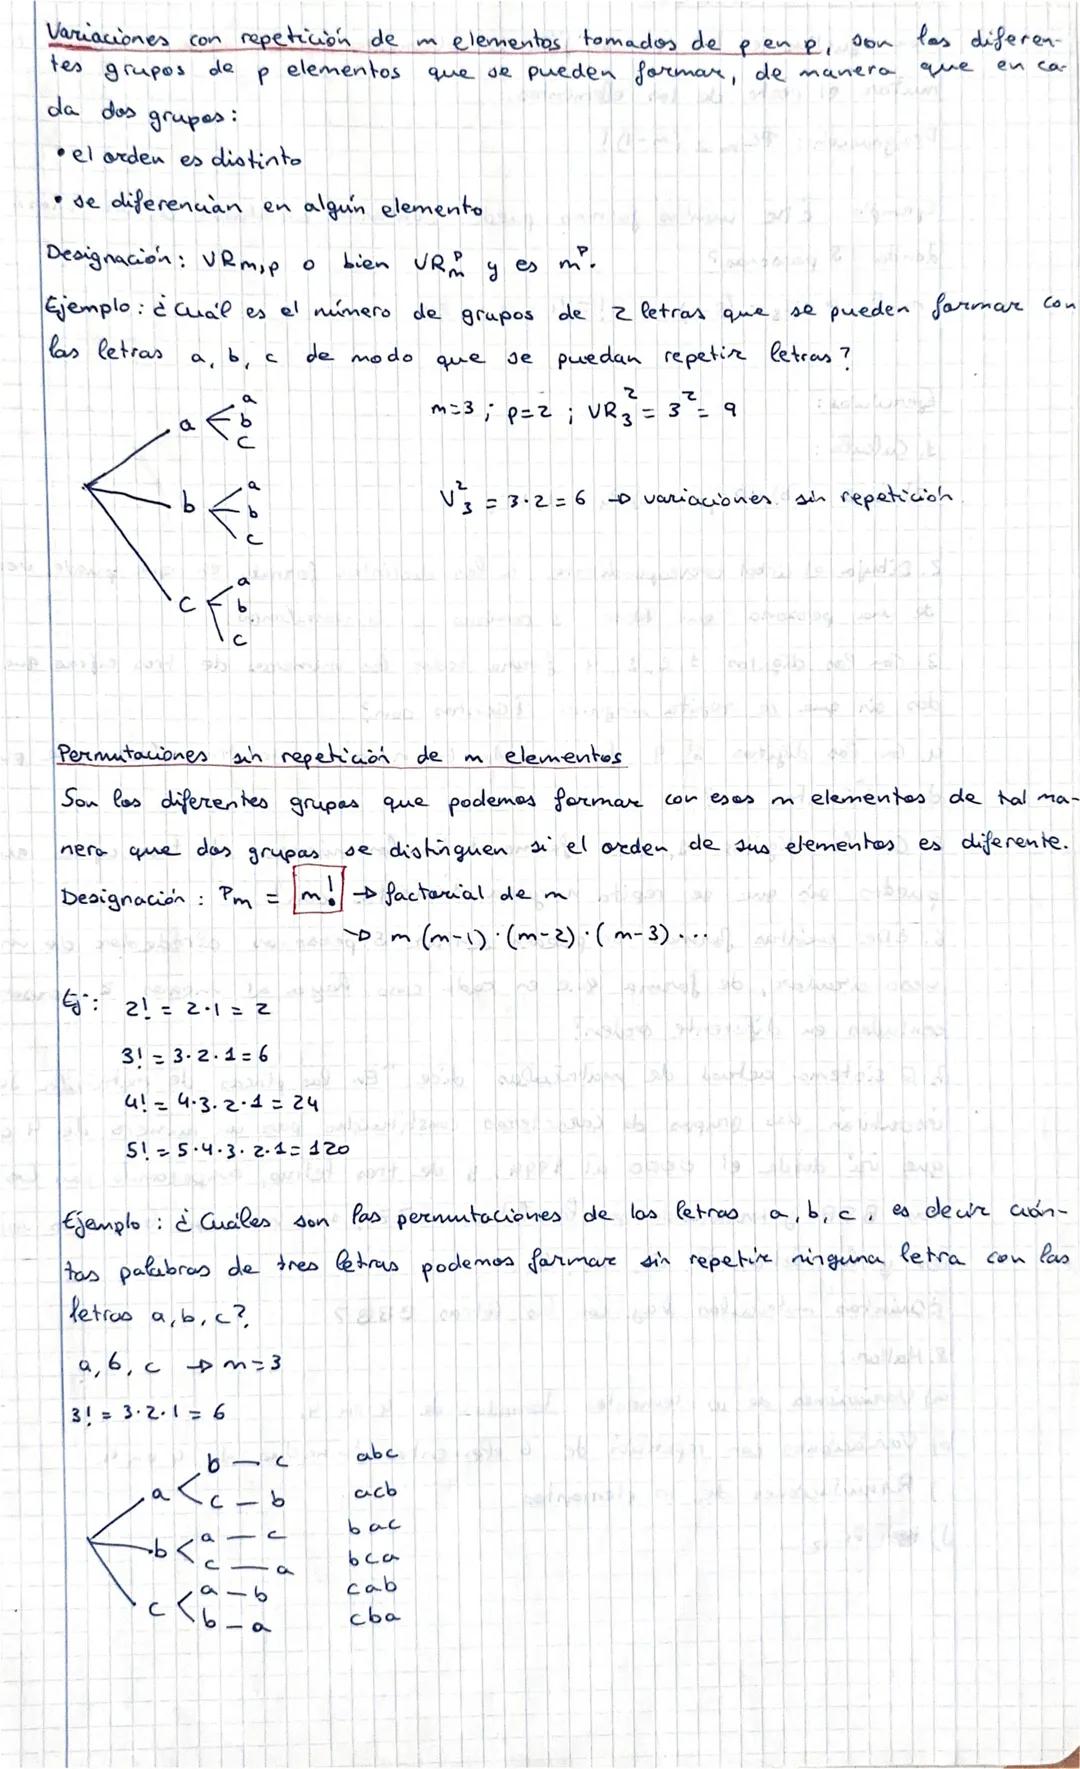 Variaciones con repetición de m elementos tomados de p en p, son los diferen-
tes grupos de p elementos que se pueden formar, de manera que en ca-
da dos grupos:
• el orden es distinto
• se diferencian en algún elemento
Designación: VRm,p o bien VR_m^p y es m^p.
Ejemplo: ¿Cuál es el número de grupos de 2 letras que se pueden formar con
las letras a, b, c de modo que se puedan repetir letras?
m=3; p=2; VR_3^2 = 3^2 = 9
a a b c
V_3^2 = 3·2 = 6 → variaciones sin repetición
b a b c
c a b c
Permutaciones sin repetición de m elementos
Son los diferentes grupos que podemos formar con esos m elementos de tal ma-
nera que dos grupos se distinguen si el orden de sus elementos es diferente.
Designación: Pm = m! → factorial de m
→ m (m-1)·(m-2)·(m-3)...
Ej: 2! = 2·1 = 2
3! = 3·2·1 = 6
4! = 4·3·2·1 = 24
5! = 5·4·3·2·1 = 120
Ejemplo: ¿Cuáles son las permutaciones de las letras a, b, c, es decir cuán-
tas palabras de tres letras podemos formar sin repetir ninguna letra con las
letras a, b, c?
a, b, c → m=3
3! = 3·2·1 = 6
b — c abc
a c — b acb
b a — c bac
c — a bca
c a — b cab
b — a cba